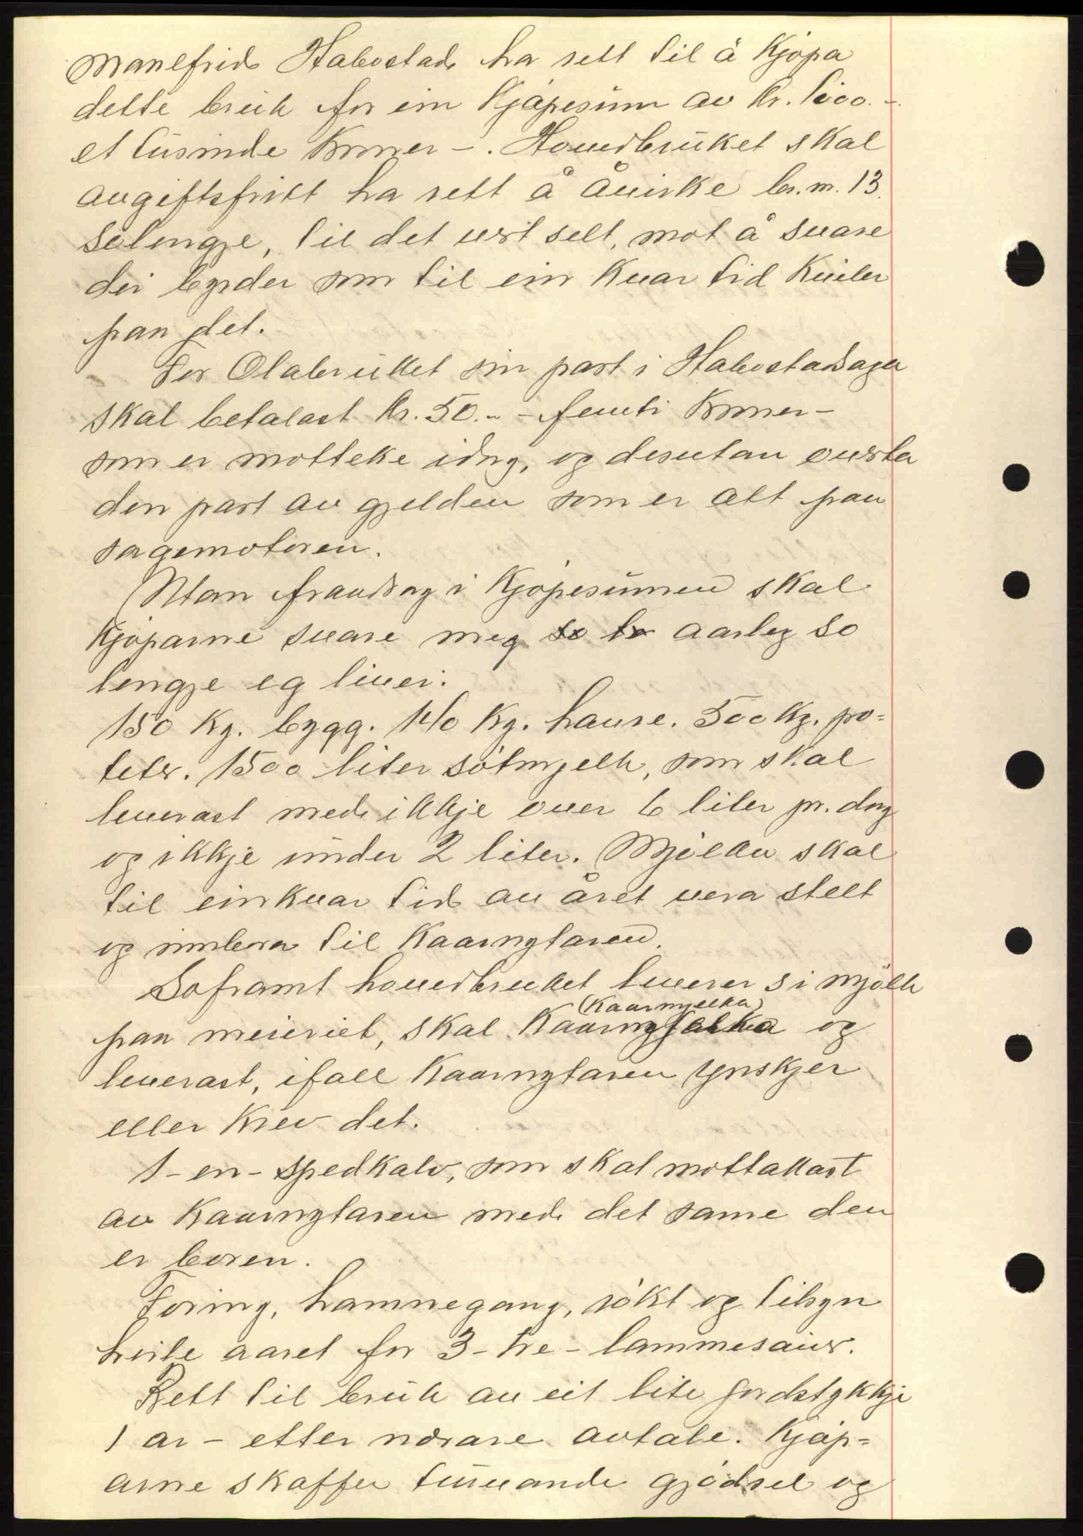 Manlfrid Habostad ha rett til å kjøpa
dette bruk for ein kjøpesum av kr. 1000.-
et tusinde kroner -. Hovedbruket skal
avgiftsfritt ha rett å åvirke br.m. 13.
Solengje, til det vert selt, mot å svare
dei byrder som til ein kvar tid kviler
paa det.
For Olabruket sin part i Habostadsagen
skal betalast kr. 50.- - femti kroner -
som er motteke idag, og desutan overta
den part av gjelden som er att paa
sagemotoren.
Utan fraadrag i kjøpesumen skal
kjøparne svare meg so aarleg so
lengje eg liver:
150 kg. bygg. 140 kg. havre. 500 kg. po-
teter. 1500 liter søtmjelk, som skal
leverast med ikkje over 6 liter pr. dag
og ikkje under 2 liter. Mjølka skal
til einkvar tid av året vera stelt
og innbora til kaarmgtaren.
Soframt hovedbruket leverer si mjølk
(Kaarmjelka)
paa meieriet, skal Kaarmjølka og
leverast, ifall kaarmgtaren ynskjer
eller krev det.
1 - en - spedkalv, som skal mottakast
av kaarmgtaren med det same den
er boren.
Foring, hamnegang, røkt og tilsyn
heile aaret for 3 - tre - lammesauer.
Rett til bruk av eit lite jordstykkje
1 ar - etter nærare avtale. Kjøp-
arne skaffer turvande gjødsel og